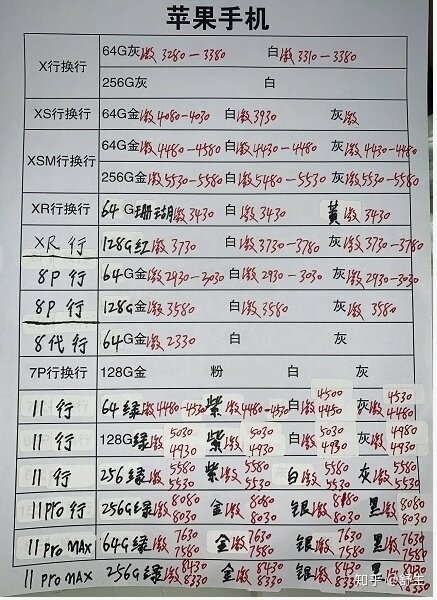 苹果手机
X行换行 64G灰激3280-3380 白激3310-3380
256G灰 白
XS行换行 64G金激4080-4030 白激3930 灰激
XSM行换行 64G金激4480-4580 白激4430-4480 灰激4430-4480
256G金激5530-5580 白激5480-5530 灰激5530-5580
XR行换行 64G珊瑚激3430 白激3430 黄激3430
XR行 128G红激3730 白激3730-3780 灰激3730-3780
8P行 64G金激2930-3030 白激2930-3030 灰激2930-3030
8P行 128G金激3580 白激3580 灰激3580
8代行 64G金激2330 白 灰
7P行换行 128G金 粉 白 灰
11行 64绿激4480-4530 紫激4480-4530 白激4500 4450 灰激4530 4480
11行 128G绿激5030 4930 紫激5030 4930 白激5030 4930 灰激4980 4930
11行 256绿激5580 5530 紫激5580 5530 白激5580 5530 灰激5580 5530
11Pro行 256G绿激8080 8030 金激8080 8030 银激8080 8030 黑激8080 8030
11Pro MAX 64G绿激7630 7580 金激7630 7580 银激7630 7580 黑激7630 7580
11Pro MAX 256G绿激8430 8330 金激8430 8330 银激8430 8330 黑激
知乎 @舒生